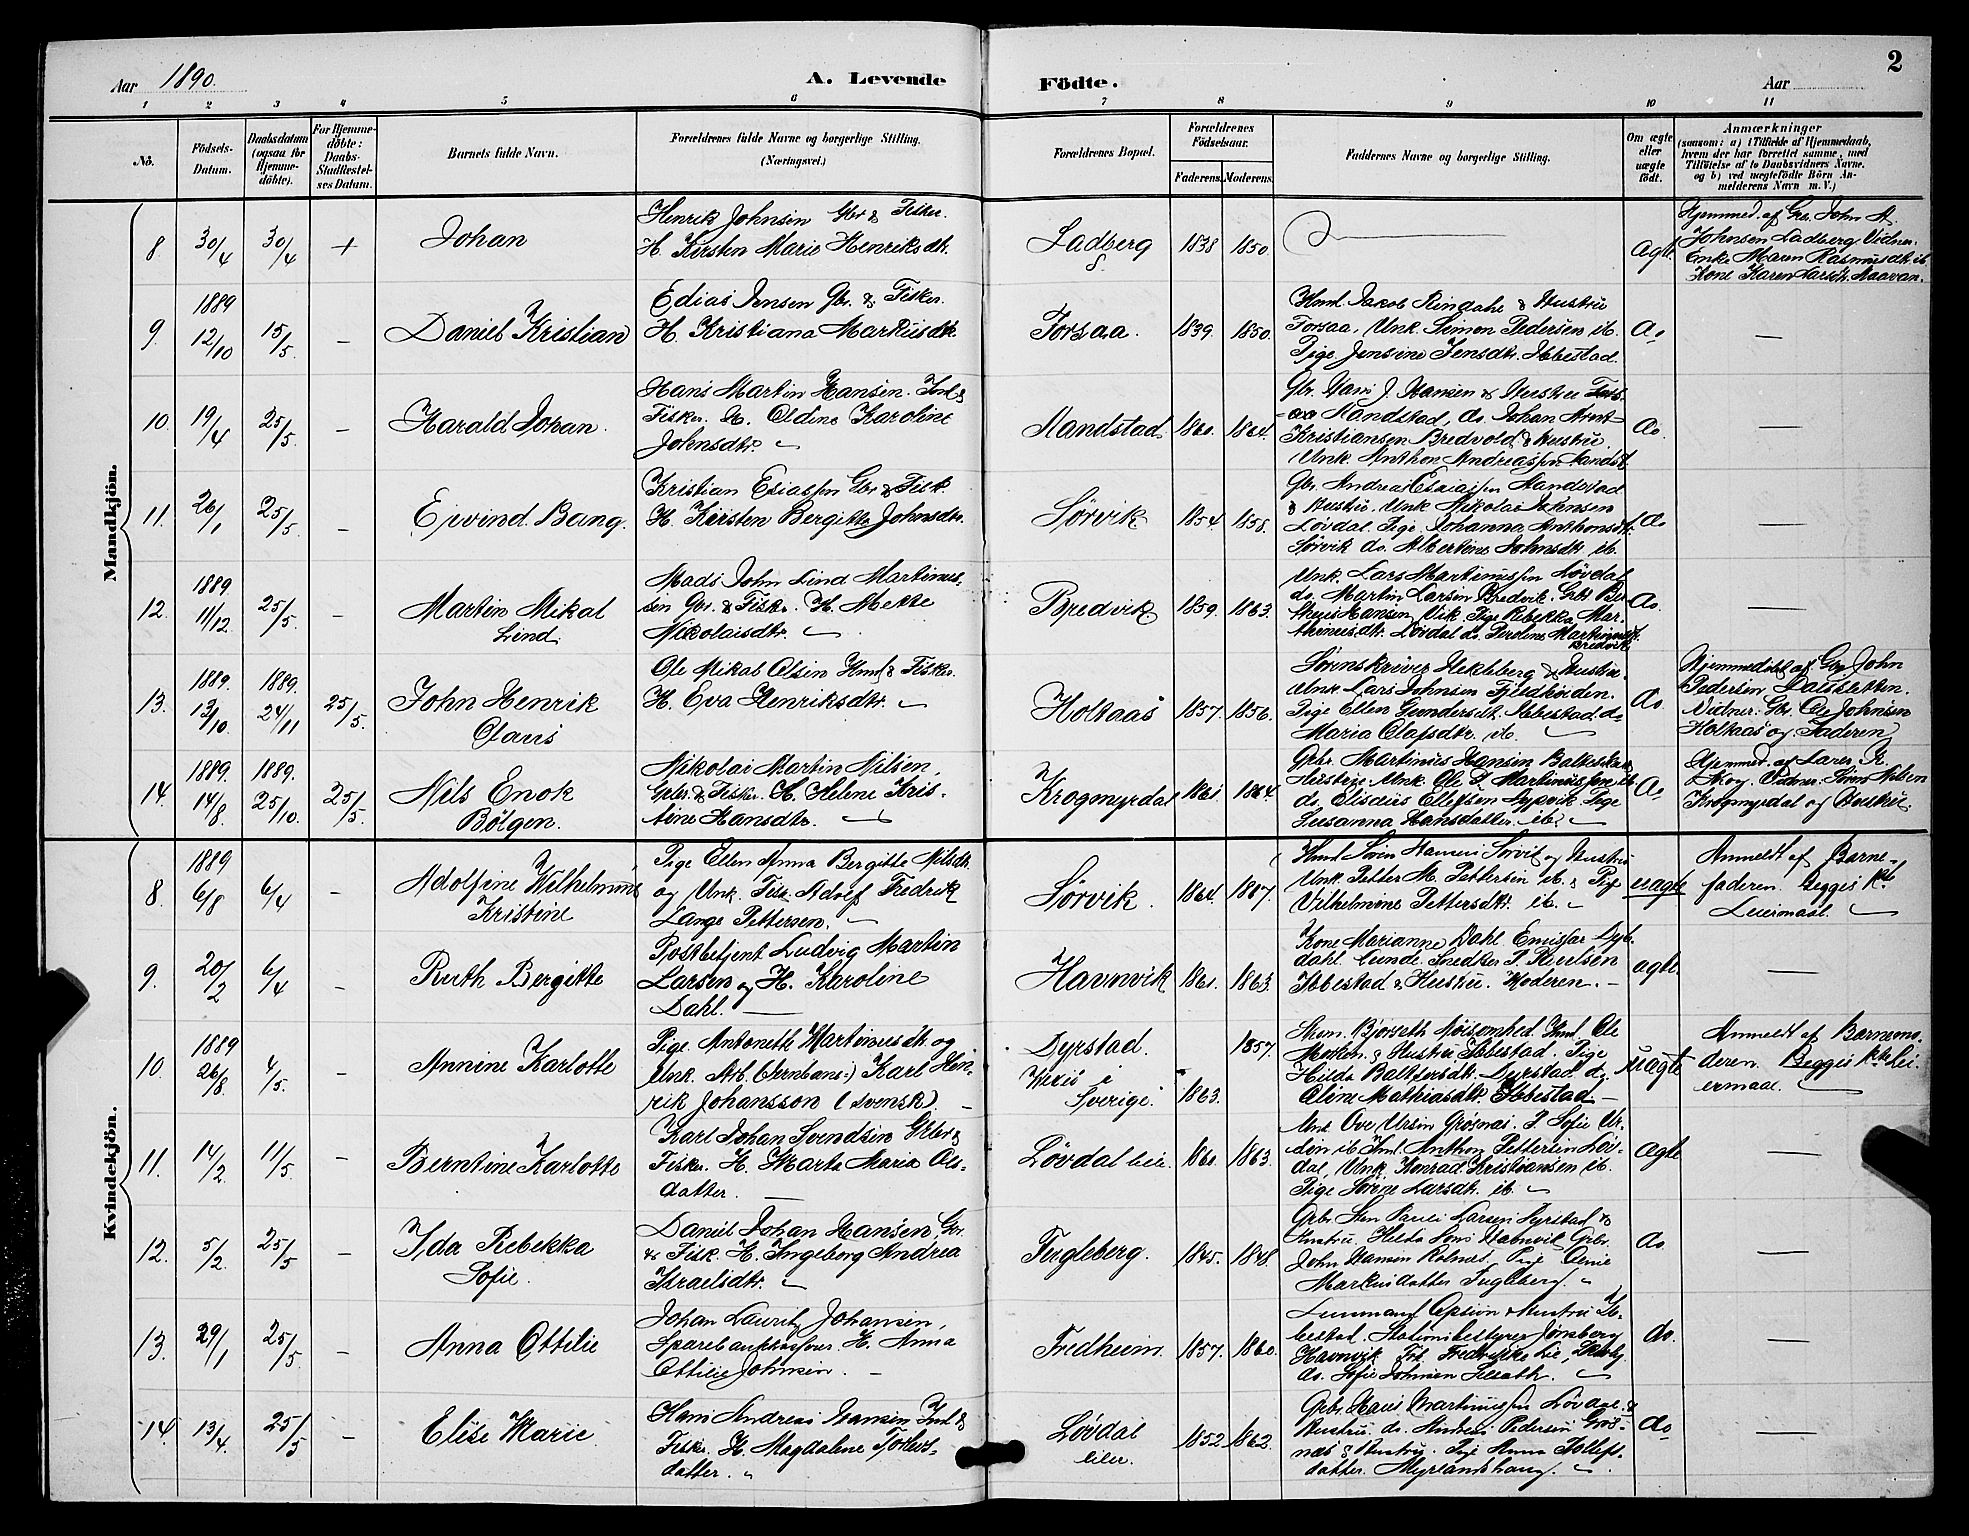 2
Aar 1890.
A. Levende Födte.
Aar
1 2 3 4 5 6 7 8 9 10 11
No.
Födsels-Datum.
Daabsdatum (ogsaa for Hjemmedöbte).
For Hjemmedöbte: Daabs-Stadfestelses Datum.
Barnets fulde Navn.
Forældrenes fulde Navne og borgerlige Stilling. (Næringsvei.)
Forældrenes Bopæl.
Forældrenes Födselsaar.
Faderens. Moderens.
Faddernes Navne og borgerlige Stilling.
Om ægte eller uægte födt.
Anmærkninger
(saasom: a) i Tilfælde af Hjemmedaab,
hvem der har forrettet samme, med
Tilföielse af to Daabsvidners Navne,
og b) ved uægtefödte Börn Anmelderens Navn m. V.)
Mandkjön.
8 30/4 30/4 + Johan
Henrik Johnsen Gbr & Fisker.
H. Kirsten Marie Henriksdt.
Ladberg 1838 1850.
ægte
Hjemmed. af Gbr. John A.
Johnsen Ladberg. Vidner.
Enke Maren Rasmusdt. ib.
Kone Karen Larsdt.
9. 1889 12/10 15/5. – Daniel Kristian
Edias Jensen Gbr. & Fisker.
H. Kristiana Markusdt.
Forsaa. 1839. 1850.
Inml. Jakob Rindahl & Hustru
Forsaa, Unk. Simon Pedersen ib.
Pige Jensine Jensdtr. Ibbestad.
do —
10. 19/4 25/5. – Harald Johan.
Hans Martin Hansen. Inl &
Fisker. H. Oldine Karoline
Johnsdtr.
Mandstad 1860. 1864.
Gbr. Hans J. Hansen & Hustru
Mandstad, do. Johan Arnt
Kristiansen Bredvold & Hustru.
Unk. Anthon Andreassen
do. —
11. 26/1 25/5. – Ejvind Bang.
Kristian Esiassen Gbr & Fisk.
H. Kirsten Bergitte Johnsdtr.
Sørvik 1854. 1858.
Gbr. Andreas Esaiassen Mandstad
& Hustru. Unk Nikolai Jakobsen
Løvdal. Pige Johanna Anthonsdt.
Sørvik do. Albertine Johnsdt. ib.
do —
12. 1889. 11/12. 25/5. – Martin Mikal
Lind.
Mads John Lind Martinus-
sen Gbr. & Fisk. H. Mette
Nikolaisdtr.
Bredvik 1859. 1863.
Unk. Lars Martinussen Løvdal
do. Martin Larsen Bredvik. Gbr.
Hansen Vik Pige Rebekka Mar-
thinusdtr. Løvdal do. Peroline Martinusdt.
Bredvik
do. —
13. 1889. 13/10. 1889. 24/11 25/5. John Henrik
Olaus
Ole Mikal Olsen Inml & Fisker.
H. Eva Henriksdtr.
Holtaas 1857. 1856.
Sørenskriver Hekleberg & Hustru
Unk. Lars Johnsen
Pige Ellen Gundersdt. Ibbestad. do
Maria Olafsdtr. ib.
do.
Hjemmedøbt af Gbr John
Pedersen Dalsletten.
Vidner: Gbr. Ole Johnsen
Holtaas og Faderen
14. 1889. 14/8. 1889. 25/10. 25/5. Nils Enok
Bölgen.
Nikolai Martin Nilsen,
Gbr. & Fisker. H. Helene Kris-
tine Hansdtr.
Krogmyrdal 1861. 1864.
Gbr. Martinus Hansen
Hustru. Unk. Ole Martinussen ib
do. Elisæus Ellefsen Pige
Susanna Hansdatter ib.
do
Hjemmed. af Lærer K.
Skog. Vidner: Nilsen
Krogmyrdal og Hustru.
Kvindekjön.
8. 1889 6/8 6/4 – Adolfine Wilhelmine
Kristine
Pige Ellen Anna Bergitte Nilsdt.
og Unk. Fisk. Adolf Fredrik
Lange Pettersen.
Sørvik. 1864. 1867.
Inml Søren Hansen Sørvik og Hustru
Unk. Petter M. Pettersen ib. & Pige
Vilhelmine Pettersdtr. ib.
uægte
Anmeldt af Barne-
faderen. Begges 1ste
Leiermaal.
9. 20/2 6/4 – Ruth Bergitte
Postbetjent Ludvig Martin
Larsen og H. Karoline
Dahl. —
Havnvik 1861. 1863.
Kone Marianne Dahl. Emissær Dyb-
dahl. Snedker
Ibbestad & Hustru. Moderen. –
ægte —
10. 1889 26/8. 4/5. – Annine Karlotte
Pige. Antonette Martinusdt. og
Unk. Arb. (Jernbane-) Karl Hen-
rik Johansson (svensk). –
Dyrstad. 1857.
Wexiö i
Sverige. 1863.
Bjorseth Nøisomhed. Inml. Ole
& Hustru Ibbestad. Pige
Hilda Baltsersdt. Dyrstad. do.
Oline Mathiasdt. Ibbestad –
uægte
Anmeldt af Barnemo-
deren. Begges 1ste Lei-
ermaal.
11. 14/2. 11/5. – Berntine Karlotte
Karl Johan Svendsen Gbr. &
Fisker. H. Marta Maria Ols-
datter. —
Løvdal leie. 1860. 1863.
Unk Ove Ursin Grøsnæs. P. Sofie Ur-
sin ib. Inml. Anthon Pettersen Løv-
dal, Unk Konrad Kristiansen ib.
Pige Sørine Larsdt. ib.
ægte
12. 5/2. 25/5 – Ida Rebekka
Sofie.
Daniel Johan Hansen, Gbr.
& Fisk. H. Ingeborg Andrea
Israelsdtr.
Fugleberg. 1845. 1848.
Gbr. Sten Pauli Larsen Dyrstad &
Hustru. Hilda Havnvik Gbr.
John Hansen Rolnes, Pige
Markusdatter Fugleberg.
do. —
13. 29/1 25/5. – Anna Ottilie
Johan Lauritz Johansen,
Sparebankkasserer. H. Anna
Ottilie Johnsen. –
Fredheim. 1857. 1860.
Lensmand & Hustru Ib-
bestad. Stationsbestyrer Jønsberg
Havnvik Frk. Fredrikke Lie,
do. Sofie Johnsen
do. —
14. 13/4. 25/5 – Elise Marie.
Hans Andreas Hansen Inml &
Fisker. H. Magdalene
datter.
Løvdal
leie. 1852. 1862.
Gbr. Hans Martinussen Løvdal &
Hustru. do. Andreas Pedersen Grøs-
næs & Hustru. Pige Anna Tollefs-
datter. Myrlandshaug.
do —